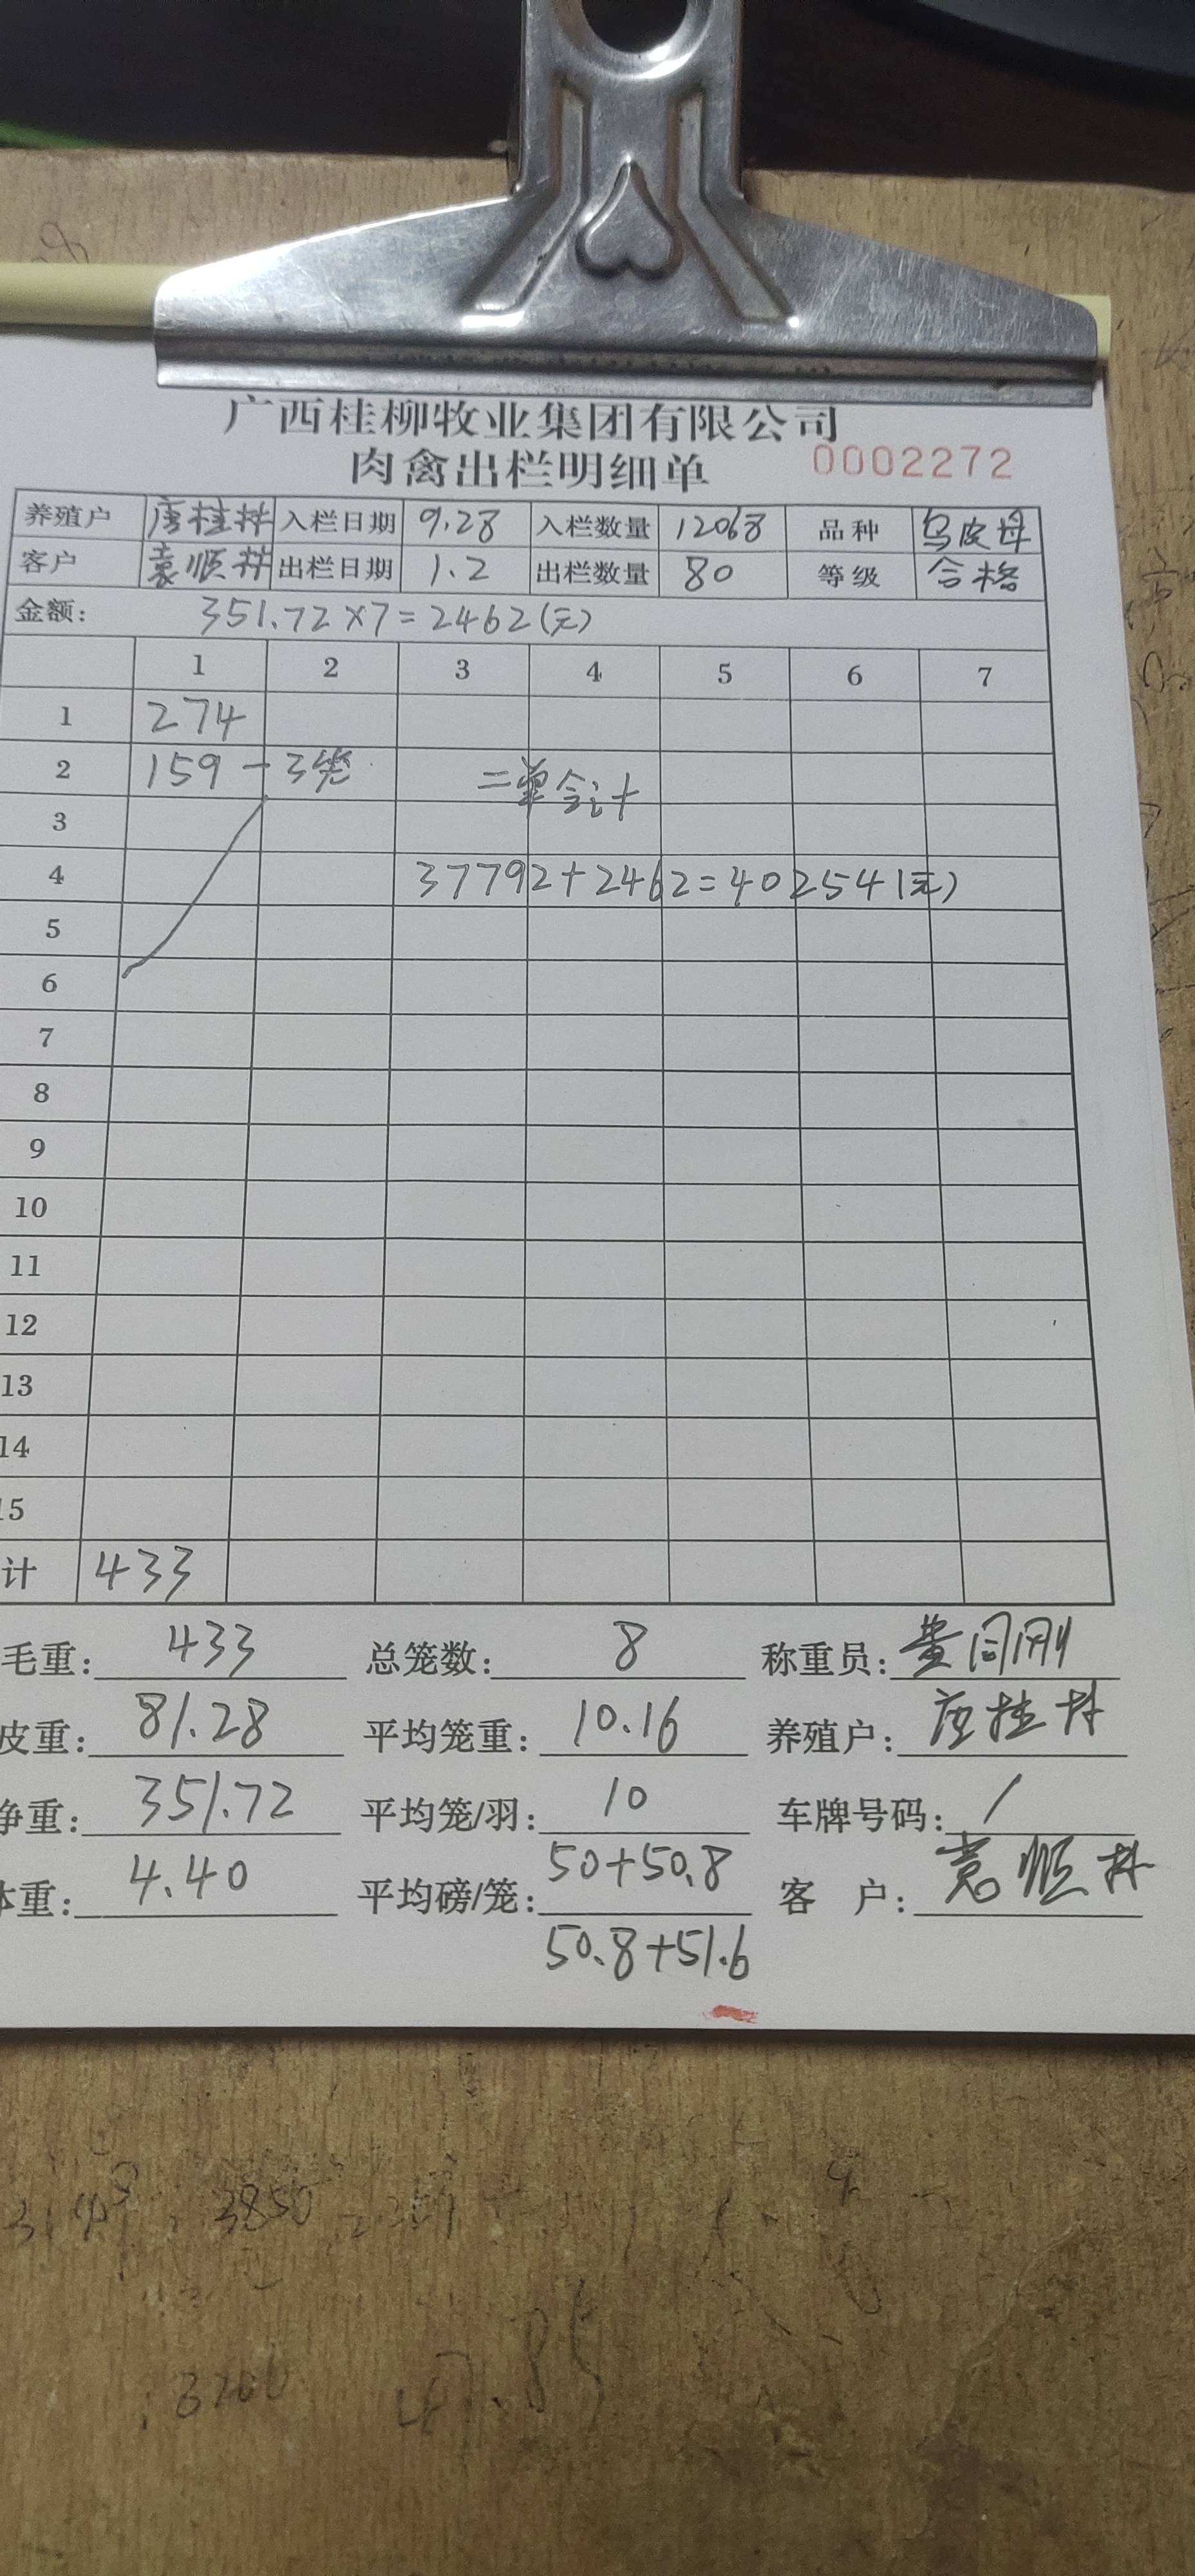 广西桂柳牧业集团有限公司
肉禽出栏明细单 0002272
养殖户 唐桂林 入栏日期 9.28 入栏数量 12068 品种 乌皮母
客户 袁顺林 出栏日期 1.2 出栏数量 80 等级 合格
金额: 351.72×7=2462(元)
1 2 3 4 5 6 7
1 274
2 159-3笼 二单合计
3
4 37792+2462=402541元)
5
6
7
8
9
10
11
12
13
14
15
计 433
毛重: 433 总笼数: 8 称重员:
皮重: 81.28 平均笼重: 10.16 养殖户: 唐桂林
净重: 351.72 平均笼/羽: 10 车牌号码: /
体重: 4.40 平均磅/笼: 50+50.8 客 户: 袁顺林
50.8+51.6